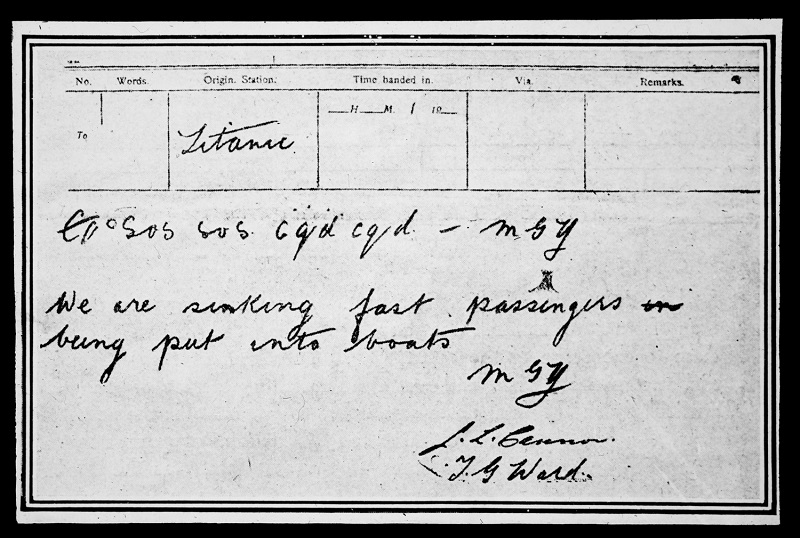 No. Words. Origin. Station. Time handed in. Via. Remarks.
H M 19
To
Titanic
Sos sos cqd cqd - MGY
We are sinking fast passengers
being put into boats
MGY
T. G Ward.